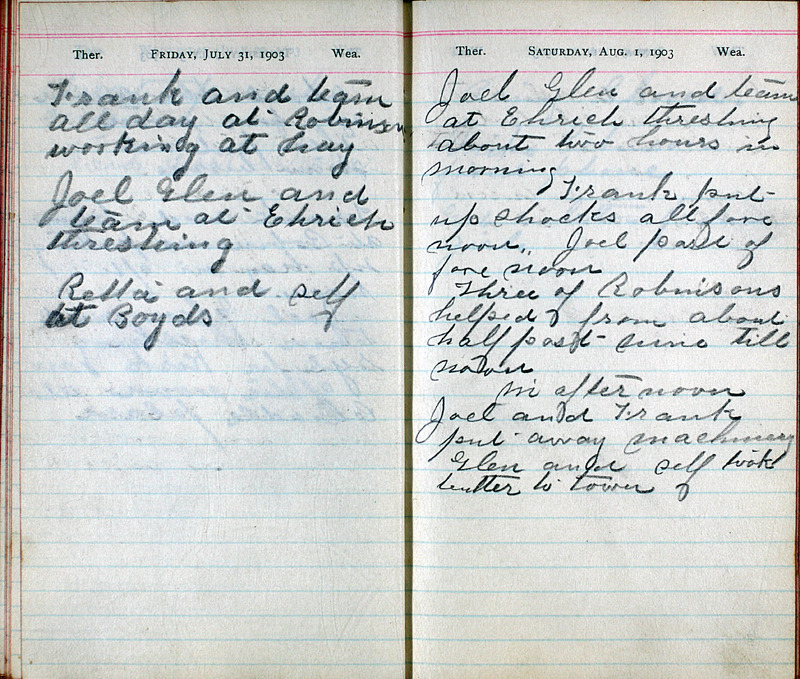 Ther. FRIDAY, JULY 31, 1903 Wea.
Frank and team
all day at Robinson
working at hay
Joel Glen and
team at Ehrich
threshing
Retta and self
at Boyds
Ther. SATURDAY, AUG. 1, 1903 Wea.
Joel Glen and team
at Ehrich threshing
about two hours in
morning
Frank put
up shocks all fore
noon, Joel part of
fore noon
Three of Robinsons
helped from about
half past nine till
noon
in after noon
Joel and Frank
put away machinery
Glen and self took
butter to town